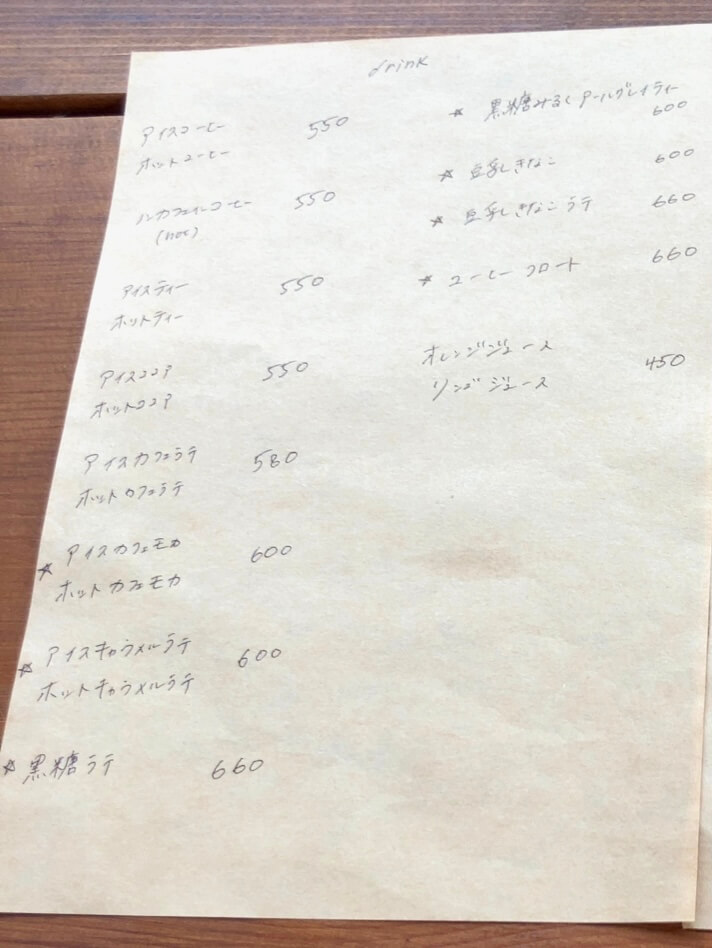 drink
アイスコーヒー 550
ホットコーヒー
ノンカフェインコーヒー 550
(hot)
アイスティー 550
ホットティー
アイスココア 550
ホットココア
アイスカフェラテ 580
ホットカフェラテ
☆ アイスカフェモカ 600
ホットカフェモカ
☆ アイスキャラメルラテ 600
ホットキャラメルラテ
☆ 黒糖ラテ 660
☆ 黒糖みるくアールグレイティー
600
☆ 豆乳しきなこ 600
☆ 豆乳しきなこラテ 660
☆ コーヒーフロート 660
オレンジジュース
リンゴジュース 450